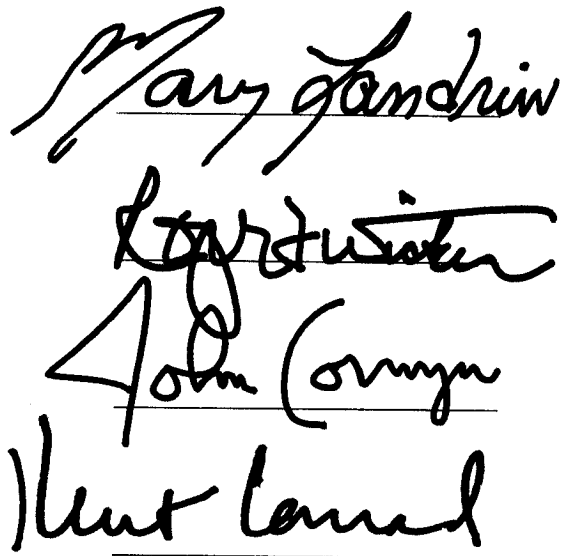 Mary Landrieu
Roger F Wicker
John Cornyn
Kent Conrad